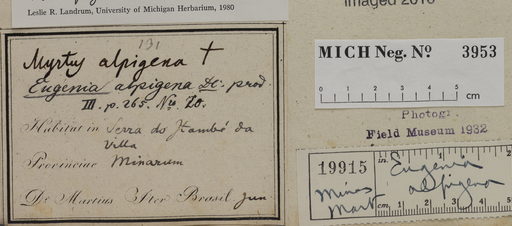 Leslie R. Landrum, University of Michigan Herbarium, 1980
Imaged 2010
131
Myrtus alpigena †
Eugenia alpigena DC. prod.
III. p. 265. No. 20.
Habitat in Serra do Itambé da
Villa
Provinciae Minarum
Dr Martius Iter Brasil Jun.
MICH Neg. No 3953
0 1 2 3 4 5 cm
Photog:
Field Museum 1932
19915
in. 1 2
Eugenia
alpigena
Minas
Mart
cm. 1 2 3 4 5